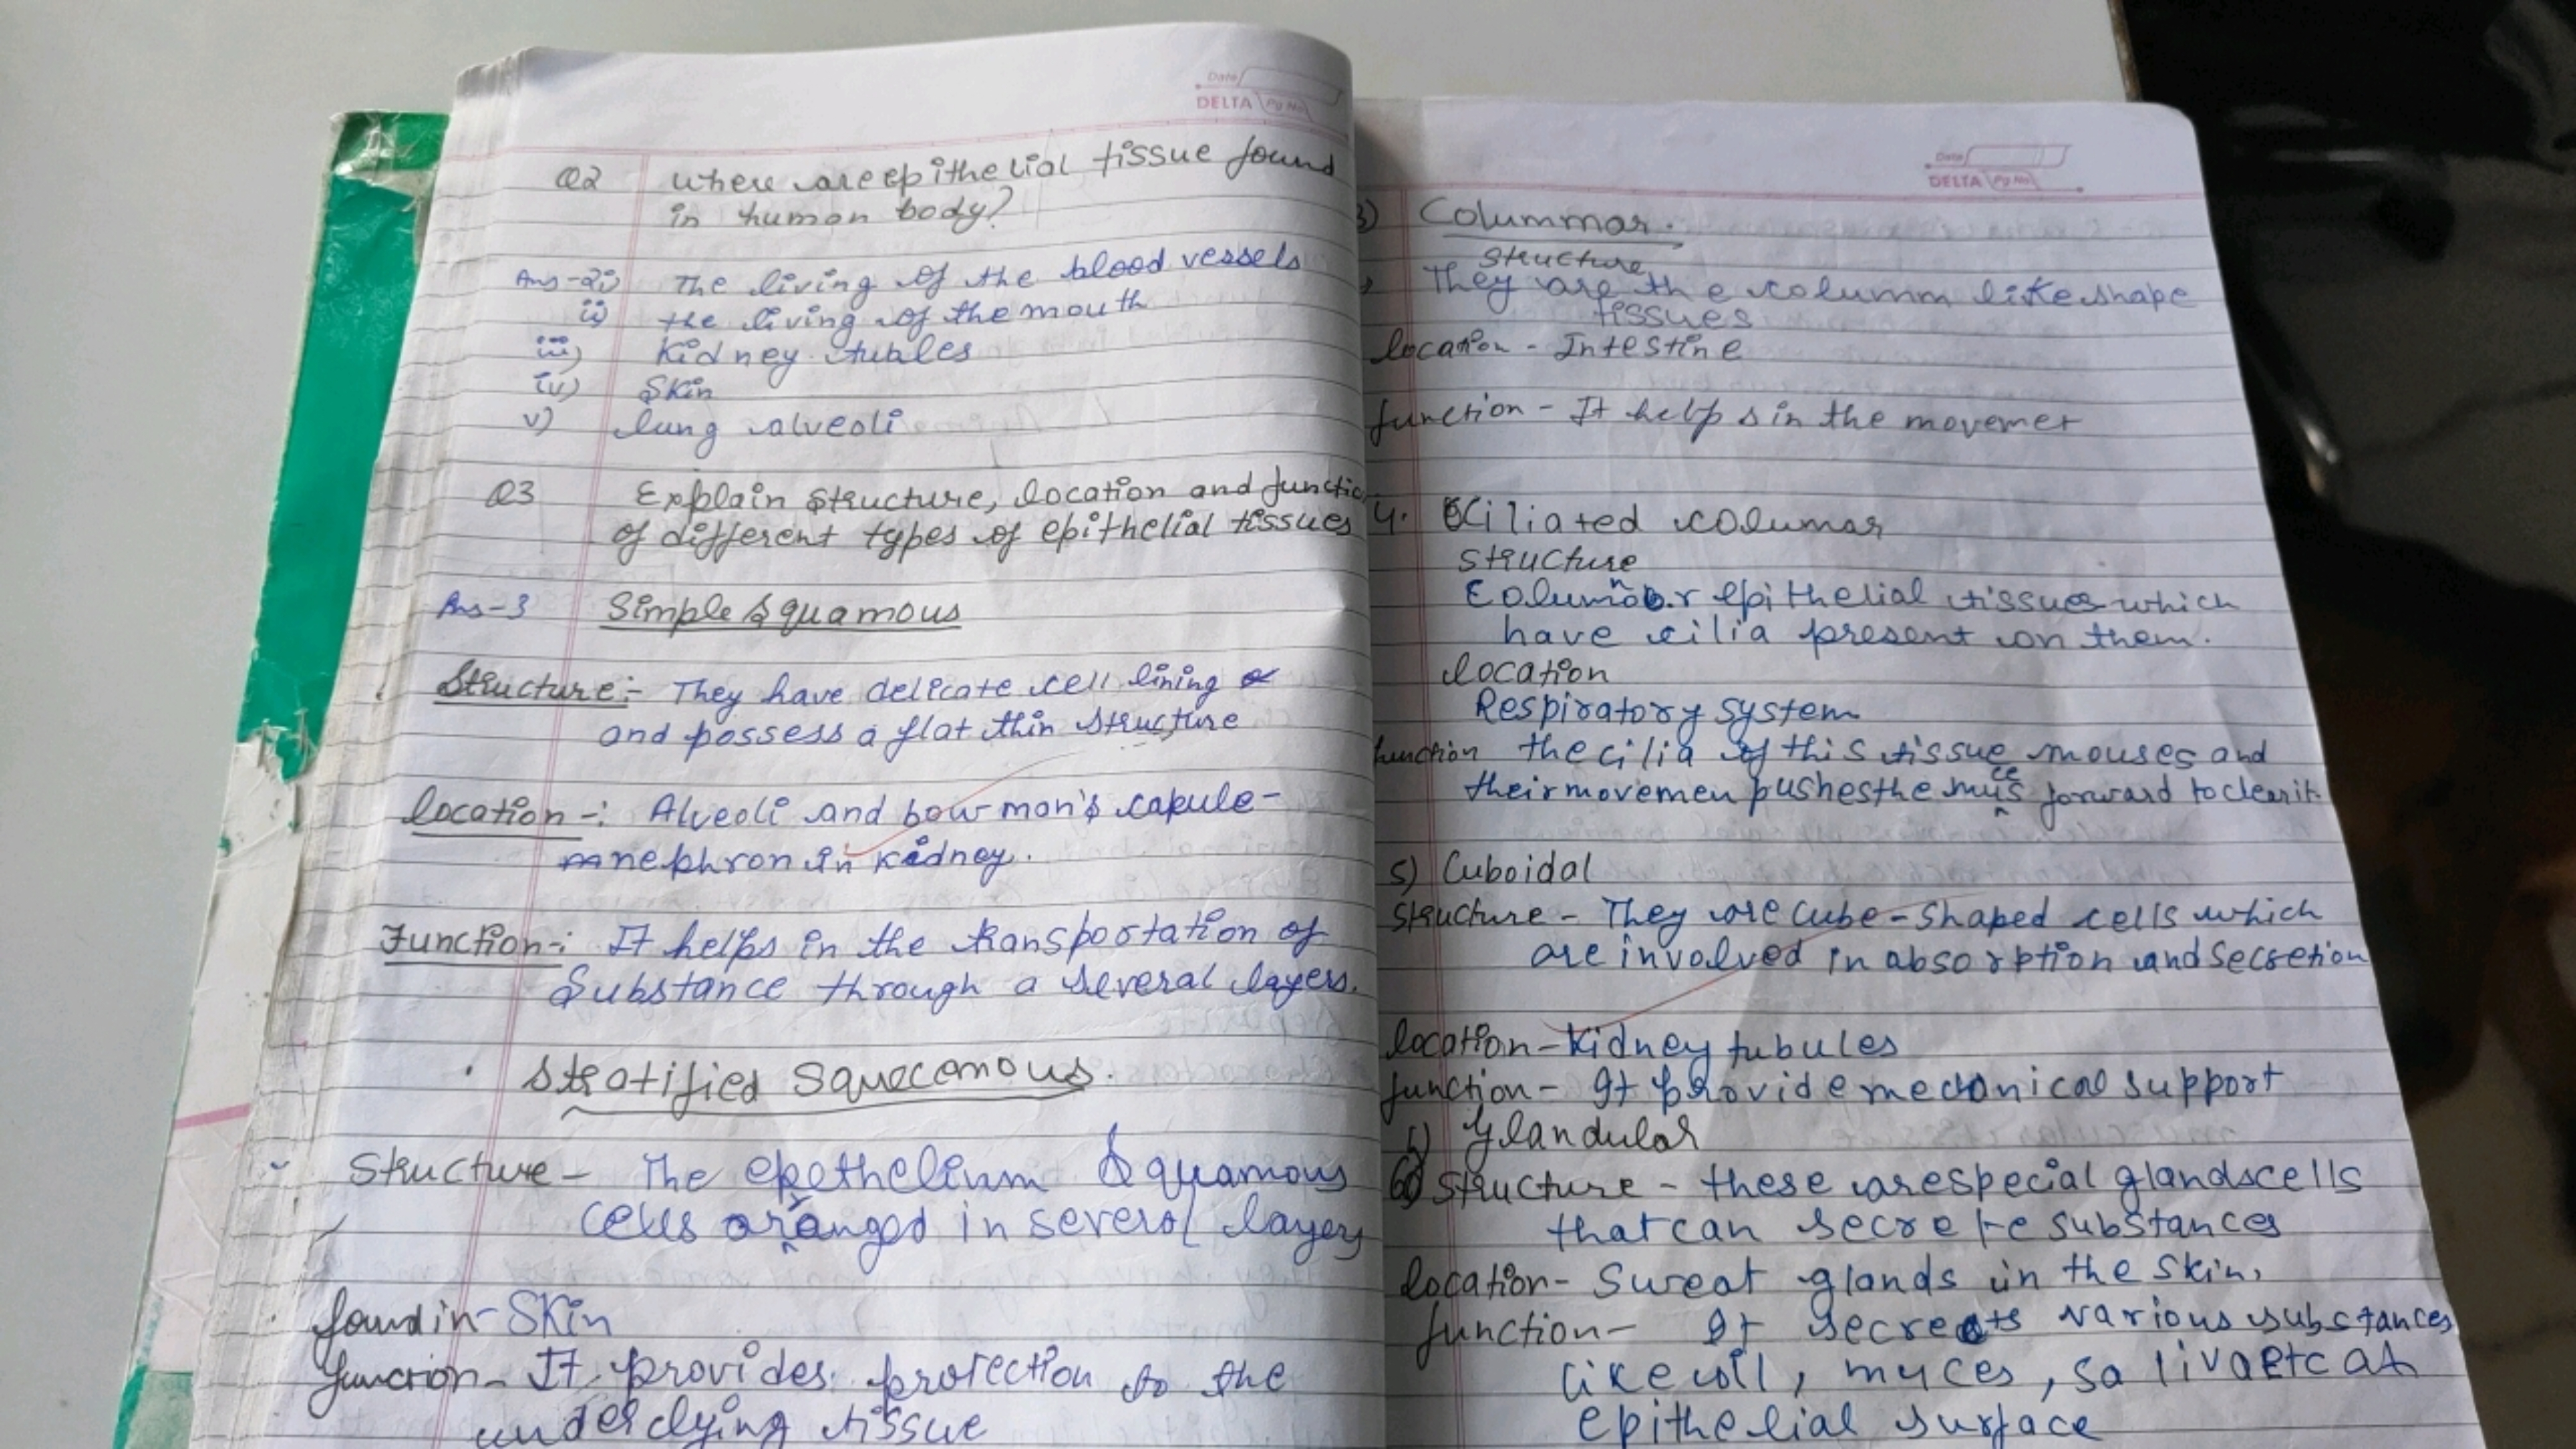 Date
DELTA Pg No
Q2 where are epithelial tissue found
in human body?
Ans-2i) The living of the blood vessels
ii) the living of the mouth
iii) Kidney tubles
iv) Skin
v) lung alveoli
Q3 Explain structure, location and functio
of different types of epithelial tissues
Ans-3 Simple Squamous
Structure:- They have delicate cell lining
and possess a flat thin structure
location -: Alveoli and bow mon's capule-
nephron in kidney.
Function-: It helps in the transportation of
Substance through a several layers.
Stratified Squecemous.
Structure - The epethelium Squamous
cells arranged in several layers
found in - Skin
function - It provides protection to the
underlying tissue
Date
DELTA Pg No
3) Colummar.
structure
They are the columm like shape
tissues
location - Intestine
function - It helps in the movemet
4. Ciliated columar
structure
Columnar epithelial tissues which
have cilia present on them.
location
Respiratory system
function the cilia of this tissue mouses and
their movemen pushes the muces forward to clear it.
5) Cuboidal
Structure - They are cube-shaped cells which
are involved in absorption and secretion
location - kidney tubules
function - It provide mechonical support
Glandular
6) structure - these are special glands cells
that can secrete substances
location - Sweat glands in the skin,
function - It secreats various substances
like oil, myces, saliva etc at
epithelial surface